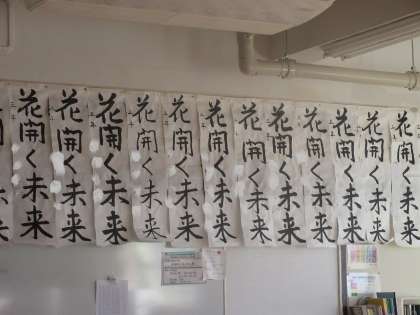 花開く未来
花開く未来
花開く未来
花開く未来
花開く未来
花開く未来
花開く未来
花開く未来
花開く未来
花開く未来
花開く未来
花開く未来